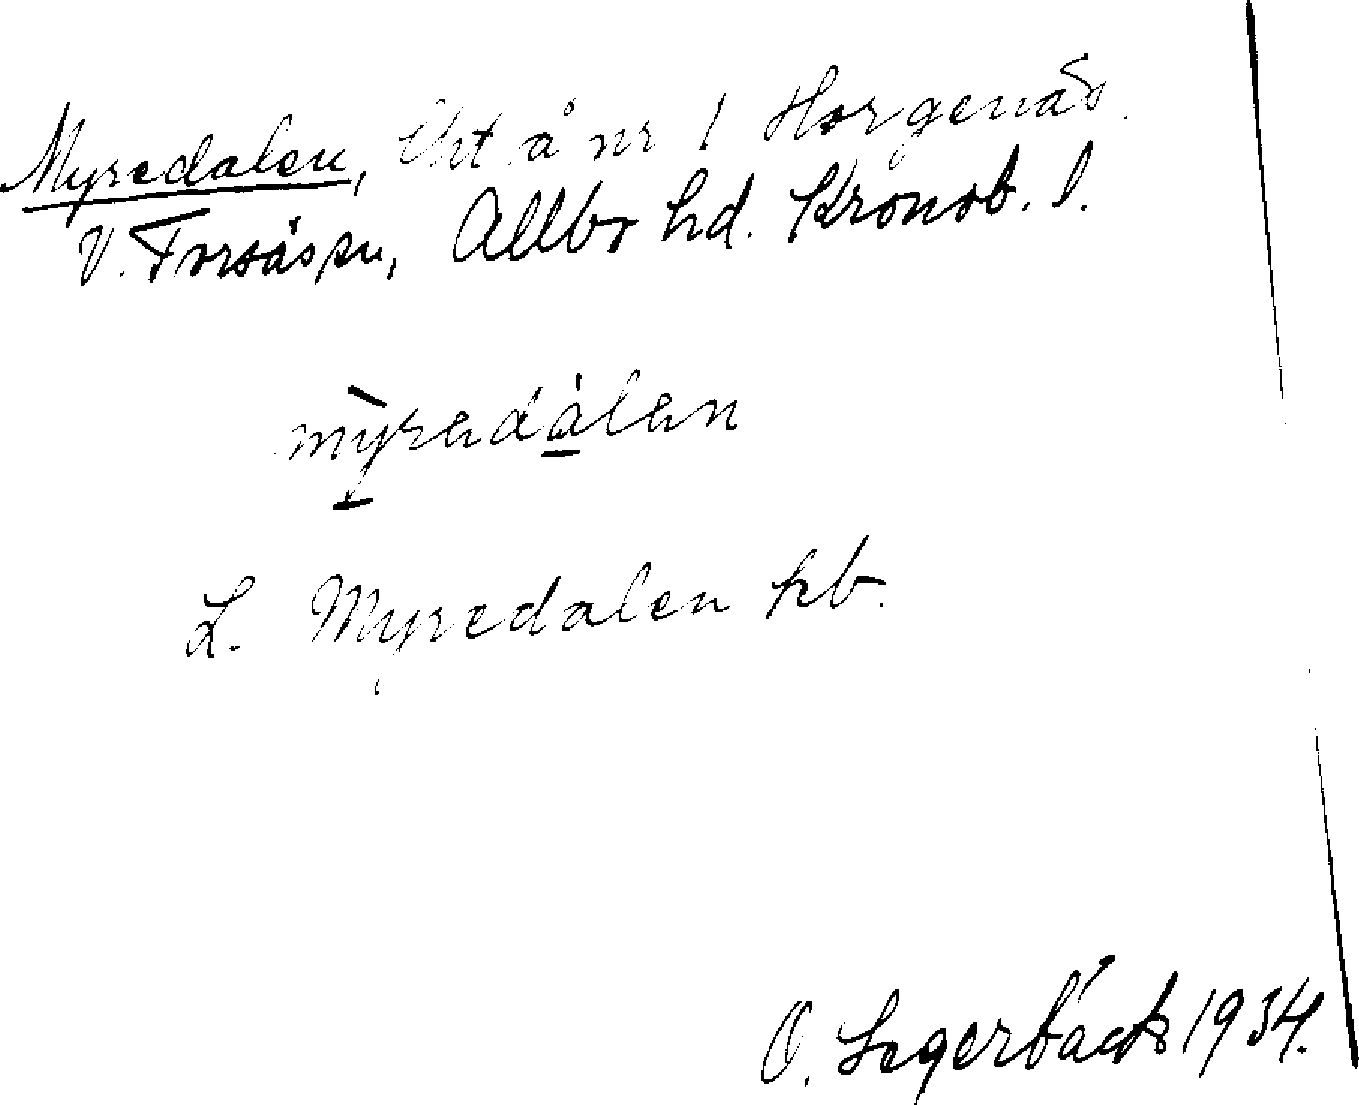 Myredalen, Lht å nr 1 Horgenäs.
V. Torsås sn, Allbo hd. Kronob. l.
mỳredàlen
L. Myredalen hb.
O. Segerbäck 1934.